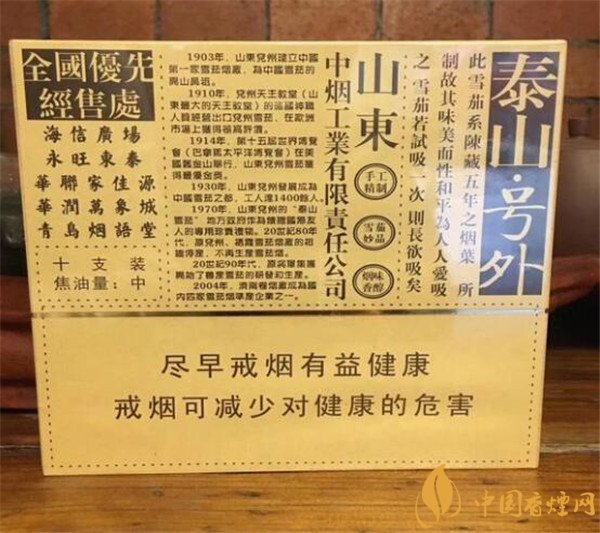 泰山·号外
此雪茄系陳藏五年之烟葉 所
制故其味美而性和平為人人愛吸
之 雪茄若試吸一次 則長欲吸矣
山東
手工
精制
雪茄
妙品
烟味
香醇
中烟工業有限責任公司
1903年，山東兖州建立中國
第一家雪茄烟廠，為中國雪茄的
1910年，兖州天主教堂（山
東最大的天主教堂）的德國神職
人員經營出口兖州雪茄，在歐洲
市場上獲得較高評價。
1914年，第十五届世界博覽
會（巴拿馬太平洋博覽會）在美
國舊金山舉行，山東兖州雪茄獲
得最優金獎。
1930年，山東兖州發展成為
中國雪茄之都，工人達1400餘人。
1970年，山東兖州的“泰山
雪茄”
20世紀80年
代，原兖州、
雪茄烟廠的相
繼停産，不再生産雪茄烟。
20世紀90年代，
開始了
雪茄的研發和生産。
2004年，濟南卷烟廠成為國
内四家雪茄烟準産企業之一。
全國優先
經售處
海信廣場
永旺東泰
華聯家佳源
華潤萬象城
青島烟語堂
十支装
焦油量：中
尽早戒烟有益健康
戒烟可减少对健康的危害
中国香煙网